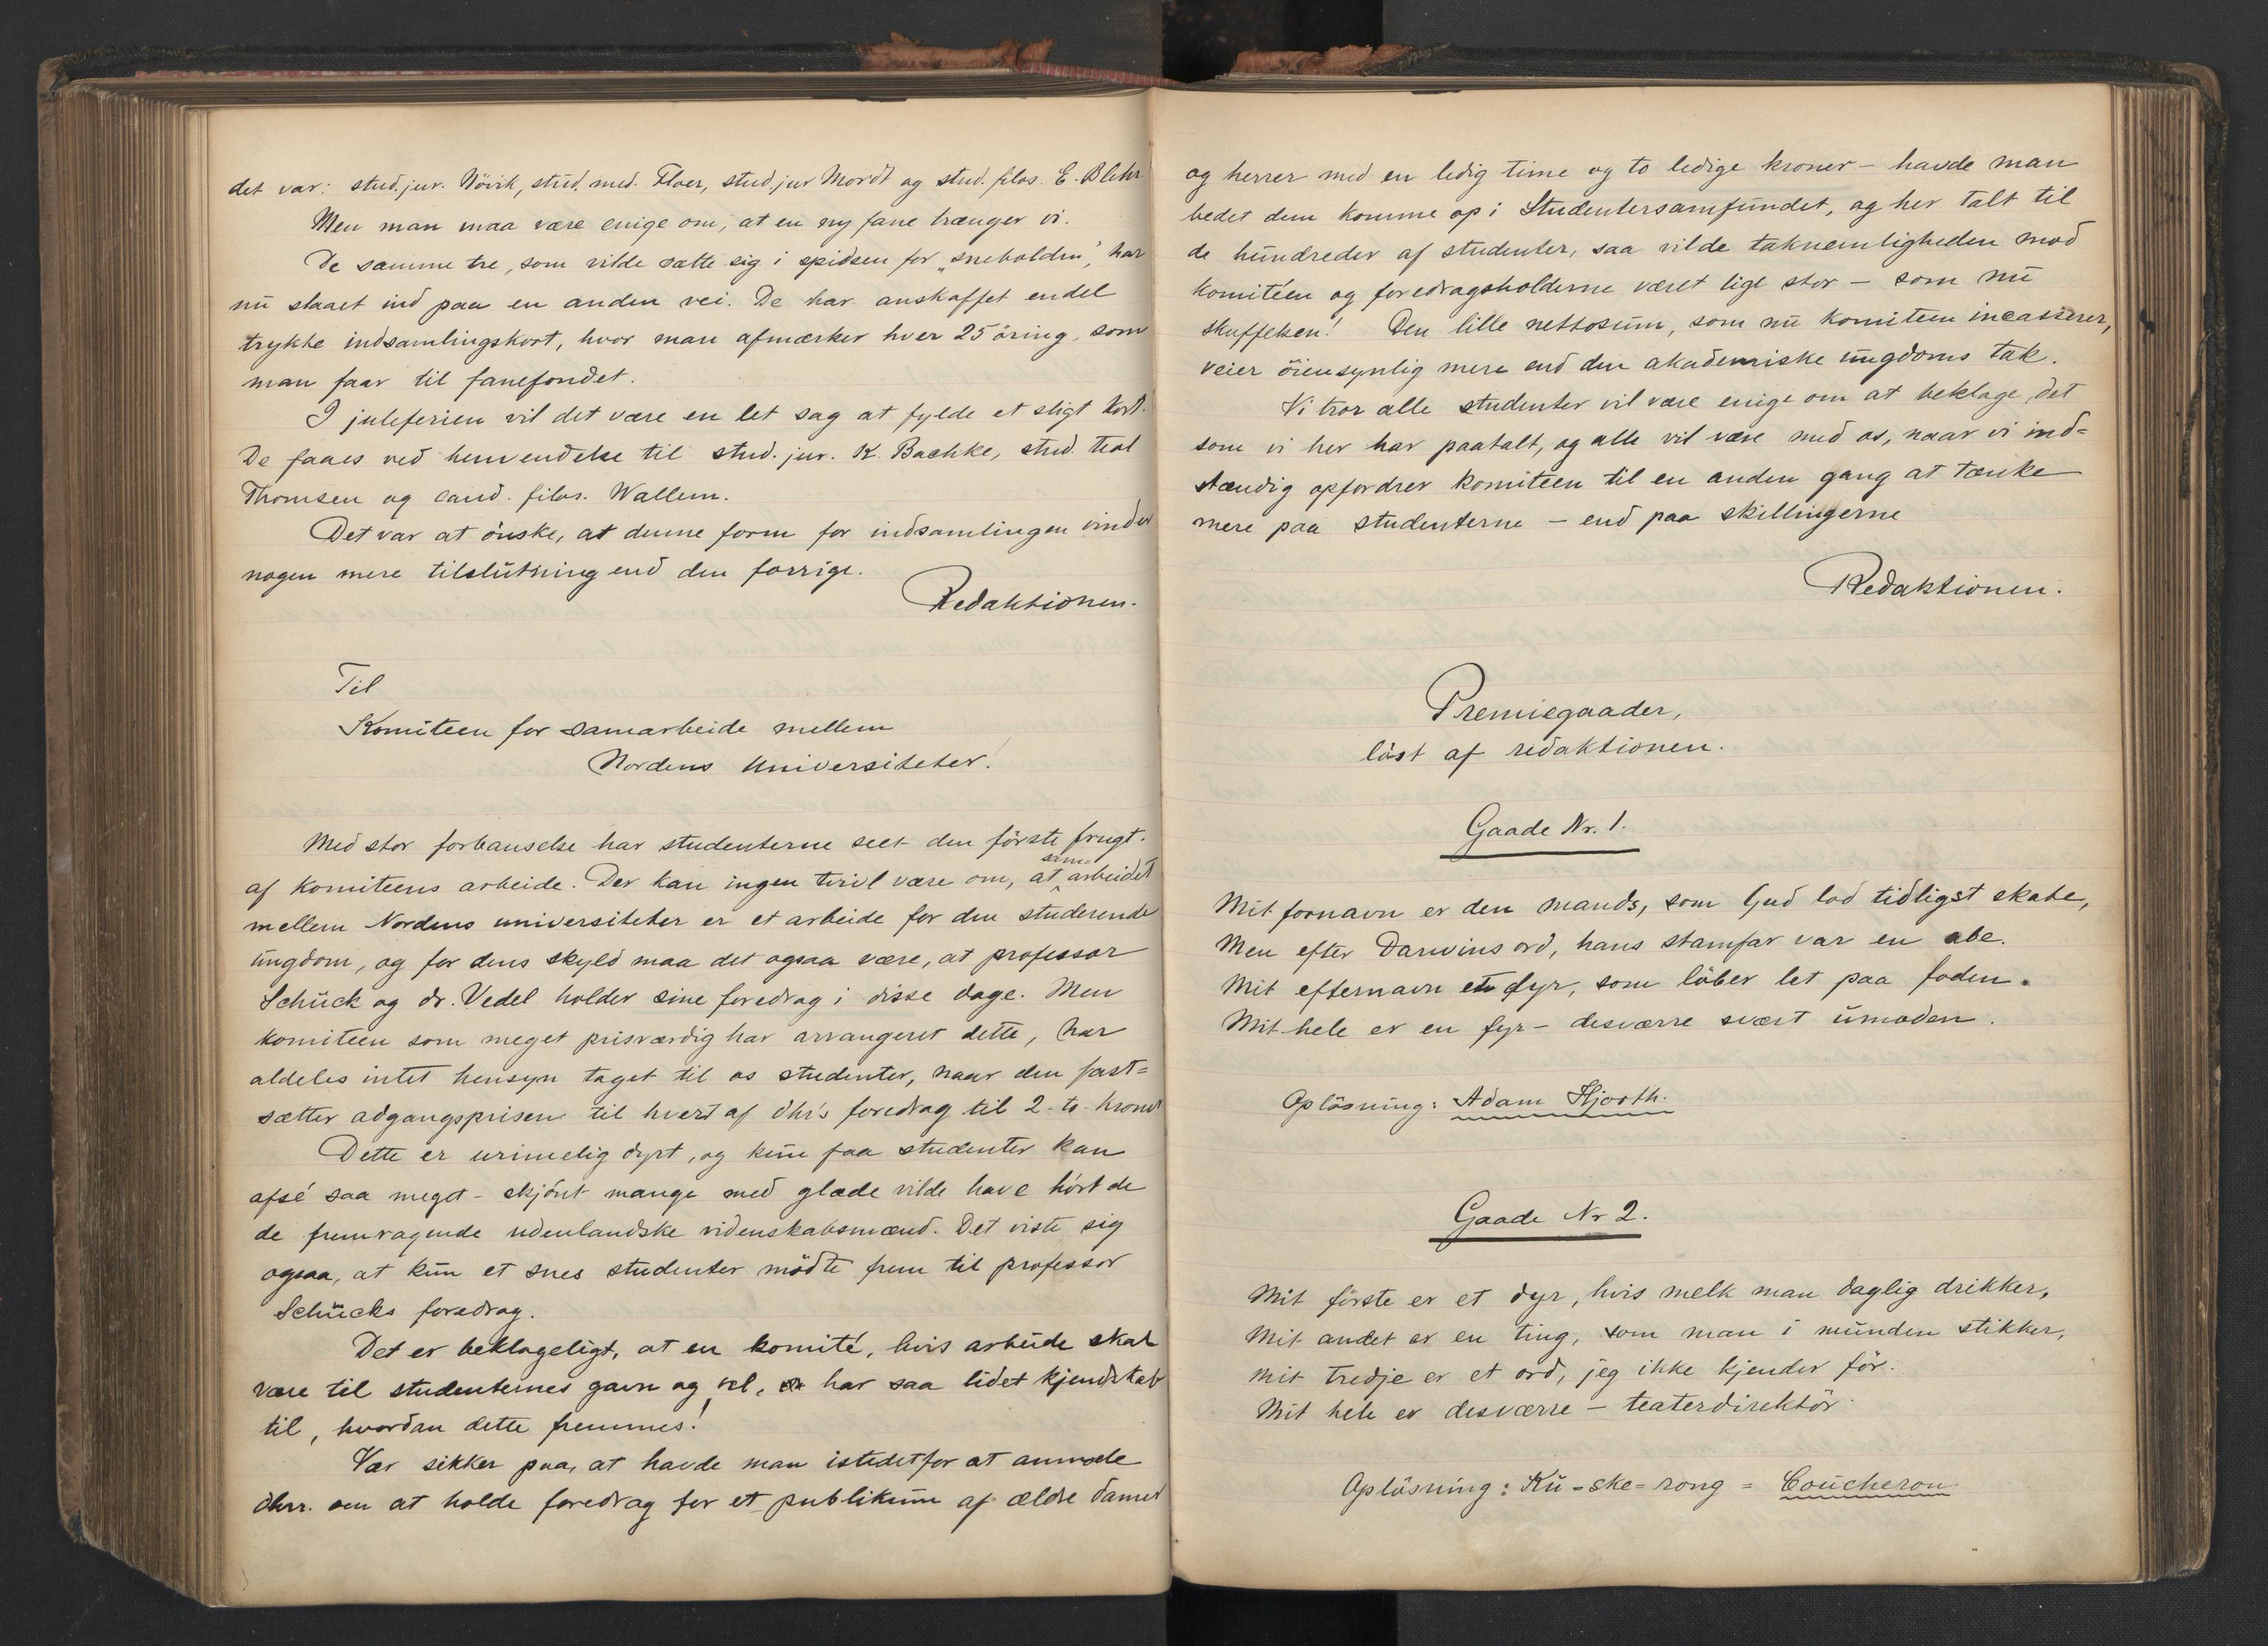 det var: stud. jur. Növik, stud. med. Floer, stud. jur Mordt og stud. filos. E. Blehr
Men man maa være enige om, at en ny fane trænger vi.
De samme tre, som vilde sætte sig i spidsen for „snebolden", har
nu slaaet ind paa en anden vei. De har anskaffet endel
trykte indsamlingskort, hvor man afmærker hver 25 öring, som
man faar til fanefondet.
I juleferien vil det være en let sag at fylde et sligt kort.
De faaes ved henvendelse til stud. jur. K. Bachke, stud. real
Thomsen og cand. filos. Wallem.
Det var at önske, at denne form for indsamlingen vinder
nogen mere tilslutning end den forrige.
Redaktionen.
Til
Komiteen for samarbeide mellem
Nordens Universiteter!
Med stor forbauselse har studenterne seet den förste frugt
af komiteens arbeide. Der kan ingen tvivl være om, at sam=arbeidet
mellem Nordens universiteter er et arbeide for den studerende
ungdom, og for dens skyld maa det ogsaa være, at professor
Schück og dr. Vedel holder sine foredrag i disse dage. Men
komiteen som meget prisværdig har arrangeret dette, har
aldeles intet hensyn taget til os studenter, naar den fast=
sætter adgangsprisen til hvert af dhr's foredrag til 2 - to - kroner
Dette er urimelig dyrt, og kun faa studenter kan
afsé saa meget - skjönt mange med glæde vilde have hört de
de fremragende udenlandske videnskabsmænd. Det viste sig
ogsaa, at kun et snes studenter mödte frem til professor
Schücks foredrag.
Det er beklageligt, at en komité, hvis arbeide skal
være til studenternes gavn og vel, har saa lidet kjendskab
til, hvordan dette fremmes!
Vær sikker paa, at havde man istedetfor at anmode
dhrr. om at holde foredrag for et publikum af ældre damer
og herrer med en ledig time og to ledige kroner - havde man
bedet dem komme op i Studentersamfundet, og her talt til
de hundreder af studenter, saa vilde taknemligheden mod
komitéen og foredragsholderne været lige stor - som nu
skuffelsen! Den lille nettosum, som nu komiteen incasserer,
veier öiensynlig mere end den akademiske ungdoms tak.
Vi tror alle studenter vil være enige om at beklage, det
som vi her har paatalt, og alle vil være med os, naar vi ind=
stændig opfordrer komiteen til en anden gang at tænke
mere paa studenterne - end paa skillingerne
Redaktionen.
Premiegaader,
löst af redaktionen.
Gaade Nr. 1.
Mit fornavn er den mands, som Gud lod tidligst skabe,
Men efter Darwins ord, hans stamfar var en abe.
Mit efternavn et dyr, som löber let paa foden.
Mit hele er en fyr - desværre svært umoden.
Oplösning: Adam Hjorth.
Gaade Nr 2.
Mit förste er et dyr, hvis melk man daglig drikker,
Mit andet er en ting, som man i munden stikker,
Mit tredje er et ord, jeg ikke kjender för.
Mit hele er desværre - teaterdirektör.
Oplösning: Ku-ske-rong = Coucheron